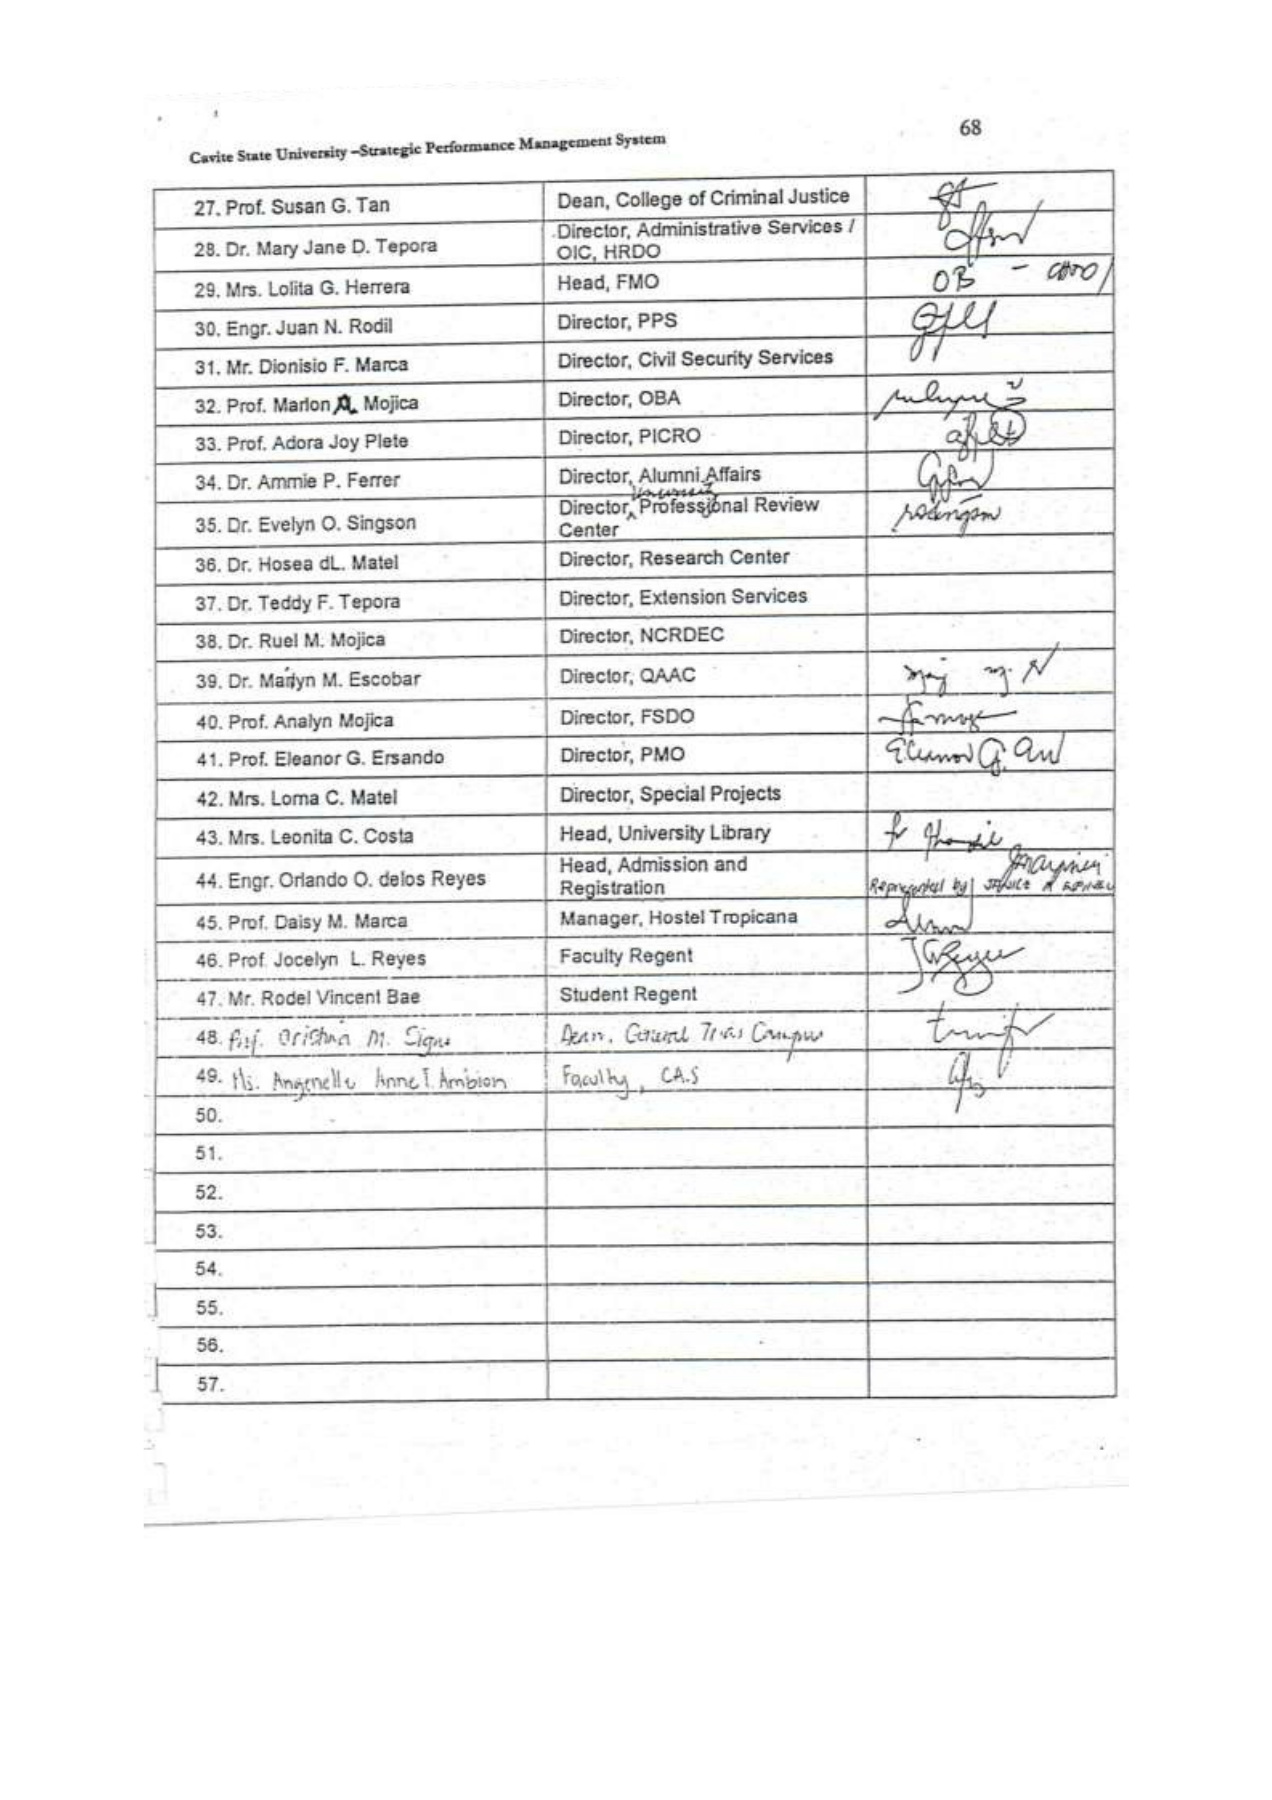 68
Cavite State University –Strategic Performance Management System
27. Prof. Susan G. Tan
Dean, College of Criminal Justice
28. Dr. Mary Jane D. Tepora
Director, Administrative Services /
OIC, HRDO
29. Mrs. Lolita G. Herrera
Head, FMO
OB -
30. Engr. Juan N. Rodil
Director, PPS
31. Mr. Dionisio F. Marca
Director, Civil Security Services
32. Prof. Marlon A. Mojica
Director, OBA
33. Prof. Adora Joy Plete
Director, PICRO
34. Dr. Ammie P. Ferrer
Director, Alumni Affairs
University
35. Dr. Evelyn O. Singson
Director, Professional Review
Center
36. Dr. Hosea dL. Matel
Director, Research Center
37. Dr. Teddy F. Tepora
Director, Extension Services
38. Dr. Ruel M. Mojica
Director, NCRDEC
39. Dr. Marlyn M. Escobar
Director, QAAC
40. Prof. Analyn Mojica
Director, FSDO
41. Prof. Eleanor G. Ersando
Director, PMO
Eleanor G.
42. Mrs. Lorna C. Matel
Director, Special Projects
43. Mrs. Leonita C. Costa
Head, University Library
44. Engr. Orlando O. delos Reyes
Head, Admission and
Registration
Represented by
45. Prof. Daisy M. Marca
Manager, Hostel Tropicana
46. Prof. Jocelyn L. Reyes
Faculty Regent
47. Mr. Rodel Vincent Bae
Student Regent
48. Prof. Cristina M. Signo
Dean, General Trias Campus
49. Ms. Angenelle Anne T. Ambion
Faculty, CAS
50.
51.
52.
53.
54.
55.
56.
57.